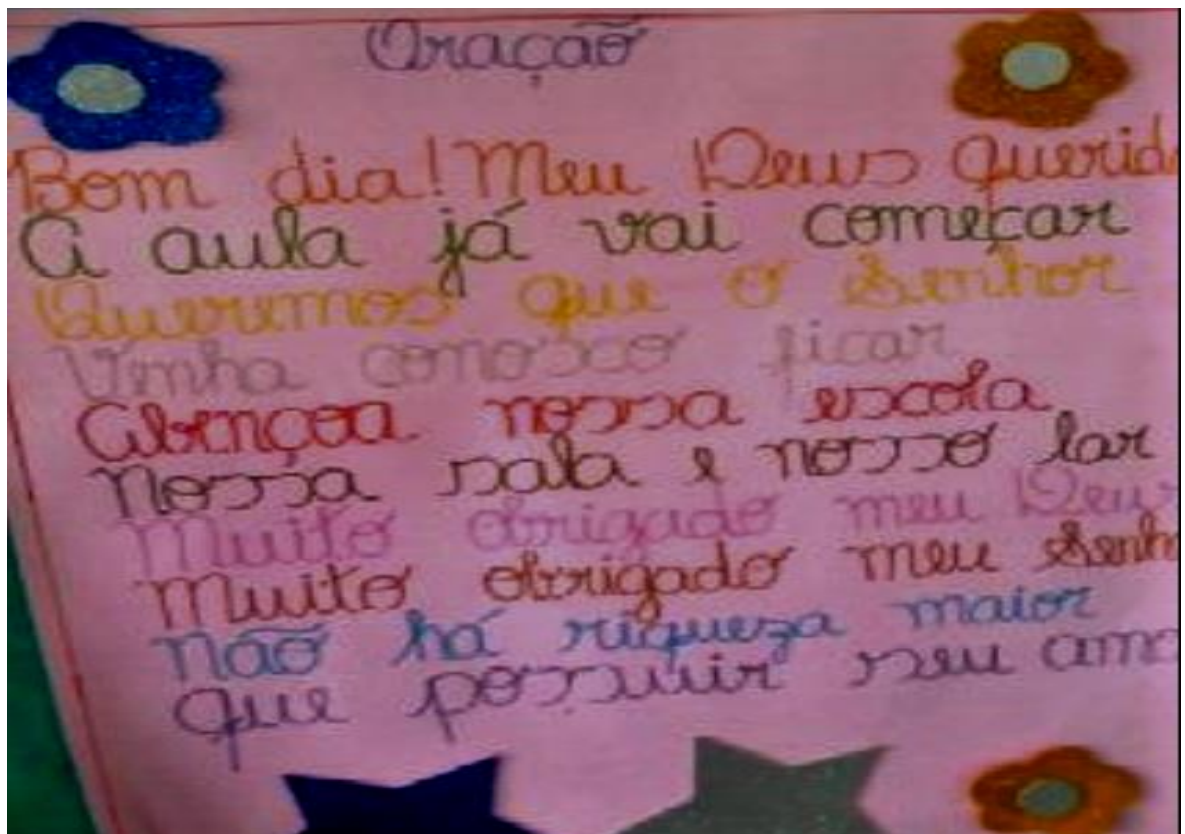 Oração
Bom dia! Meu Deus querid
A aula já vai começar
Queremos que o Senhor
Venha conosco ficar
Abençoa nossa escola
Nossa sala e nosso lar
Muito obrigado meu Deus
Muito obrigado meu Senh
Não há riqueza maior
que possuir seu amo